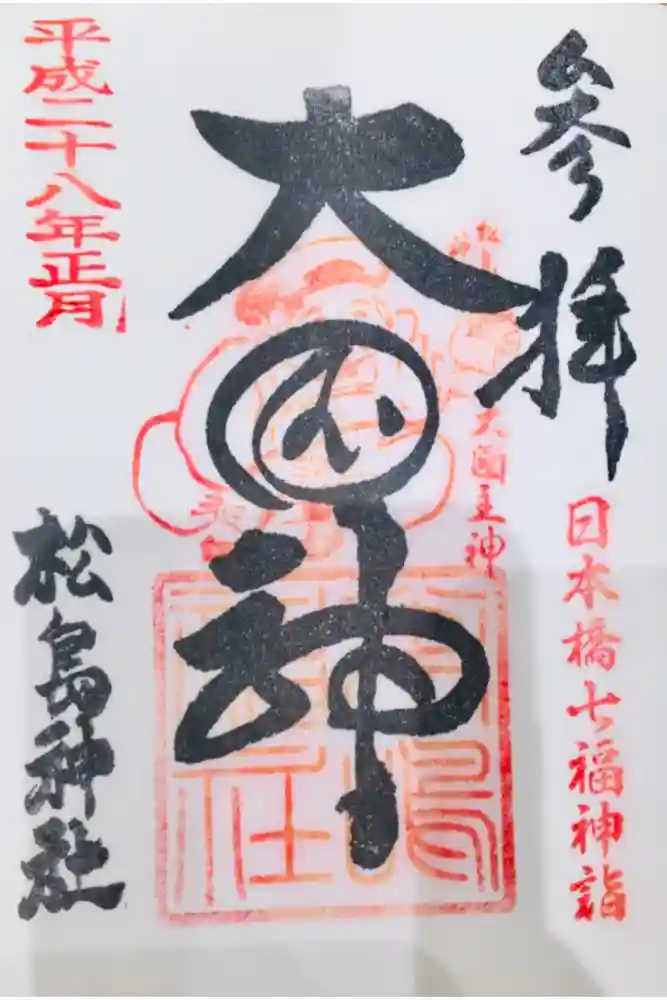 参拝
日本橋七福神詣
大国主神
大国神
松島神社
平成二十八年正月